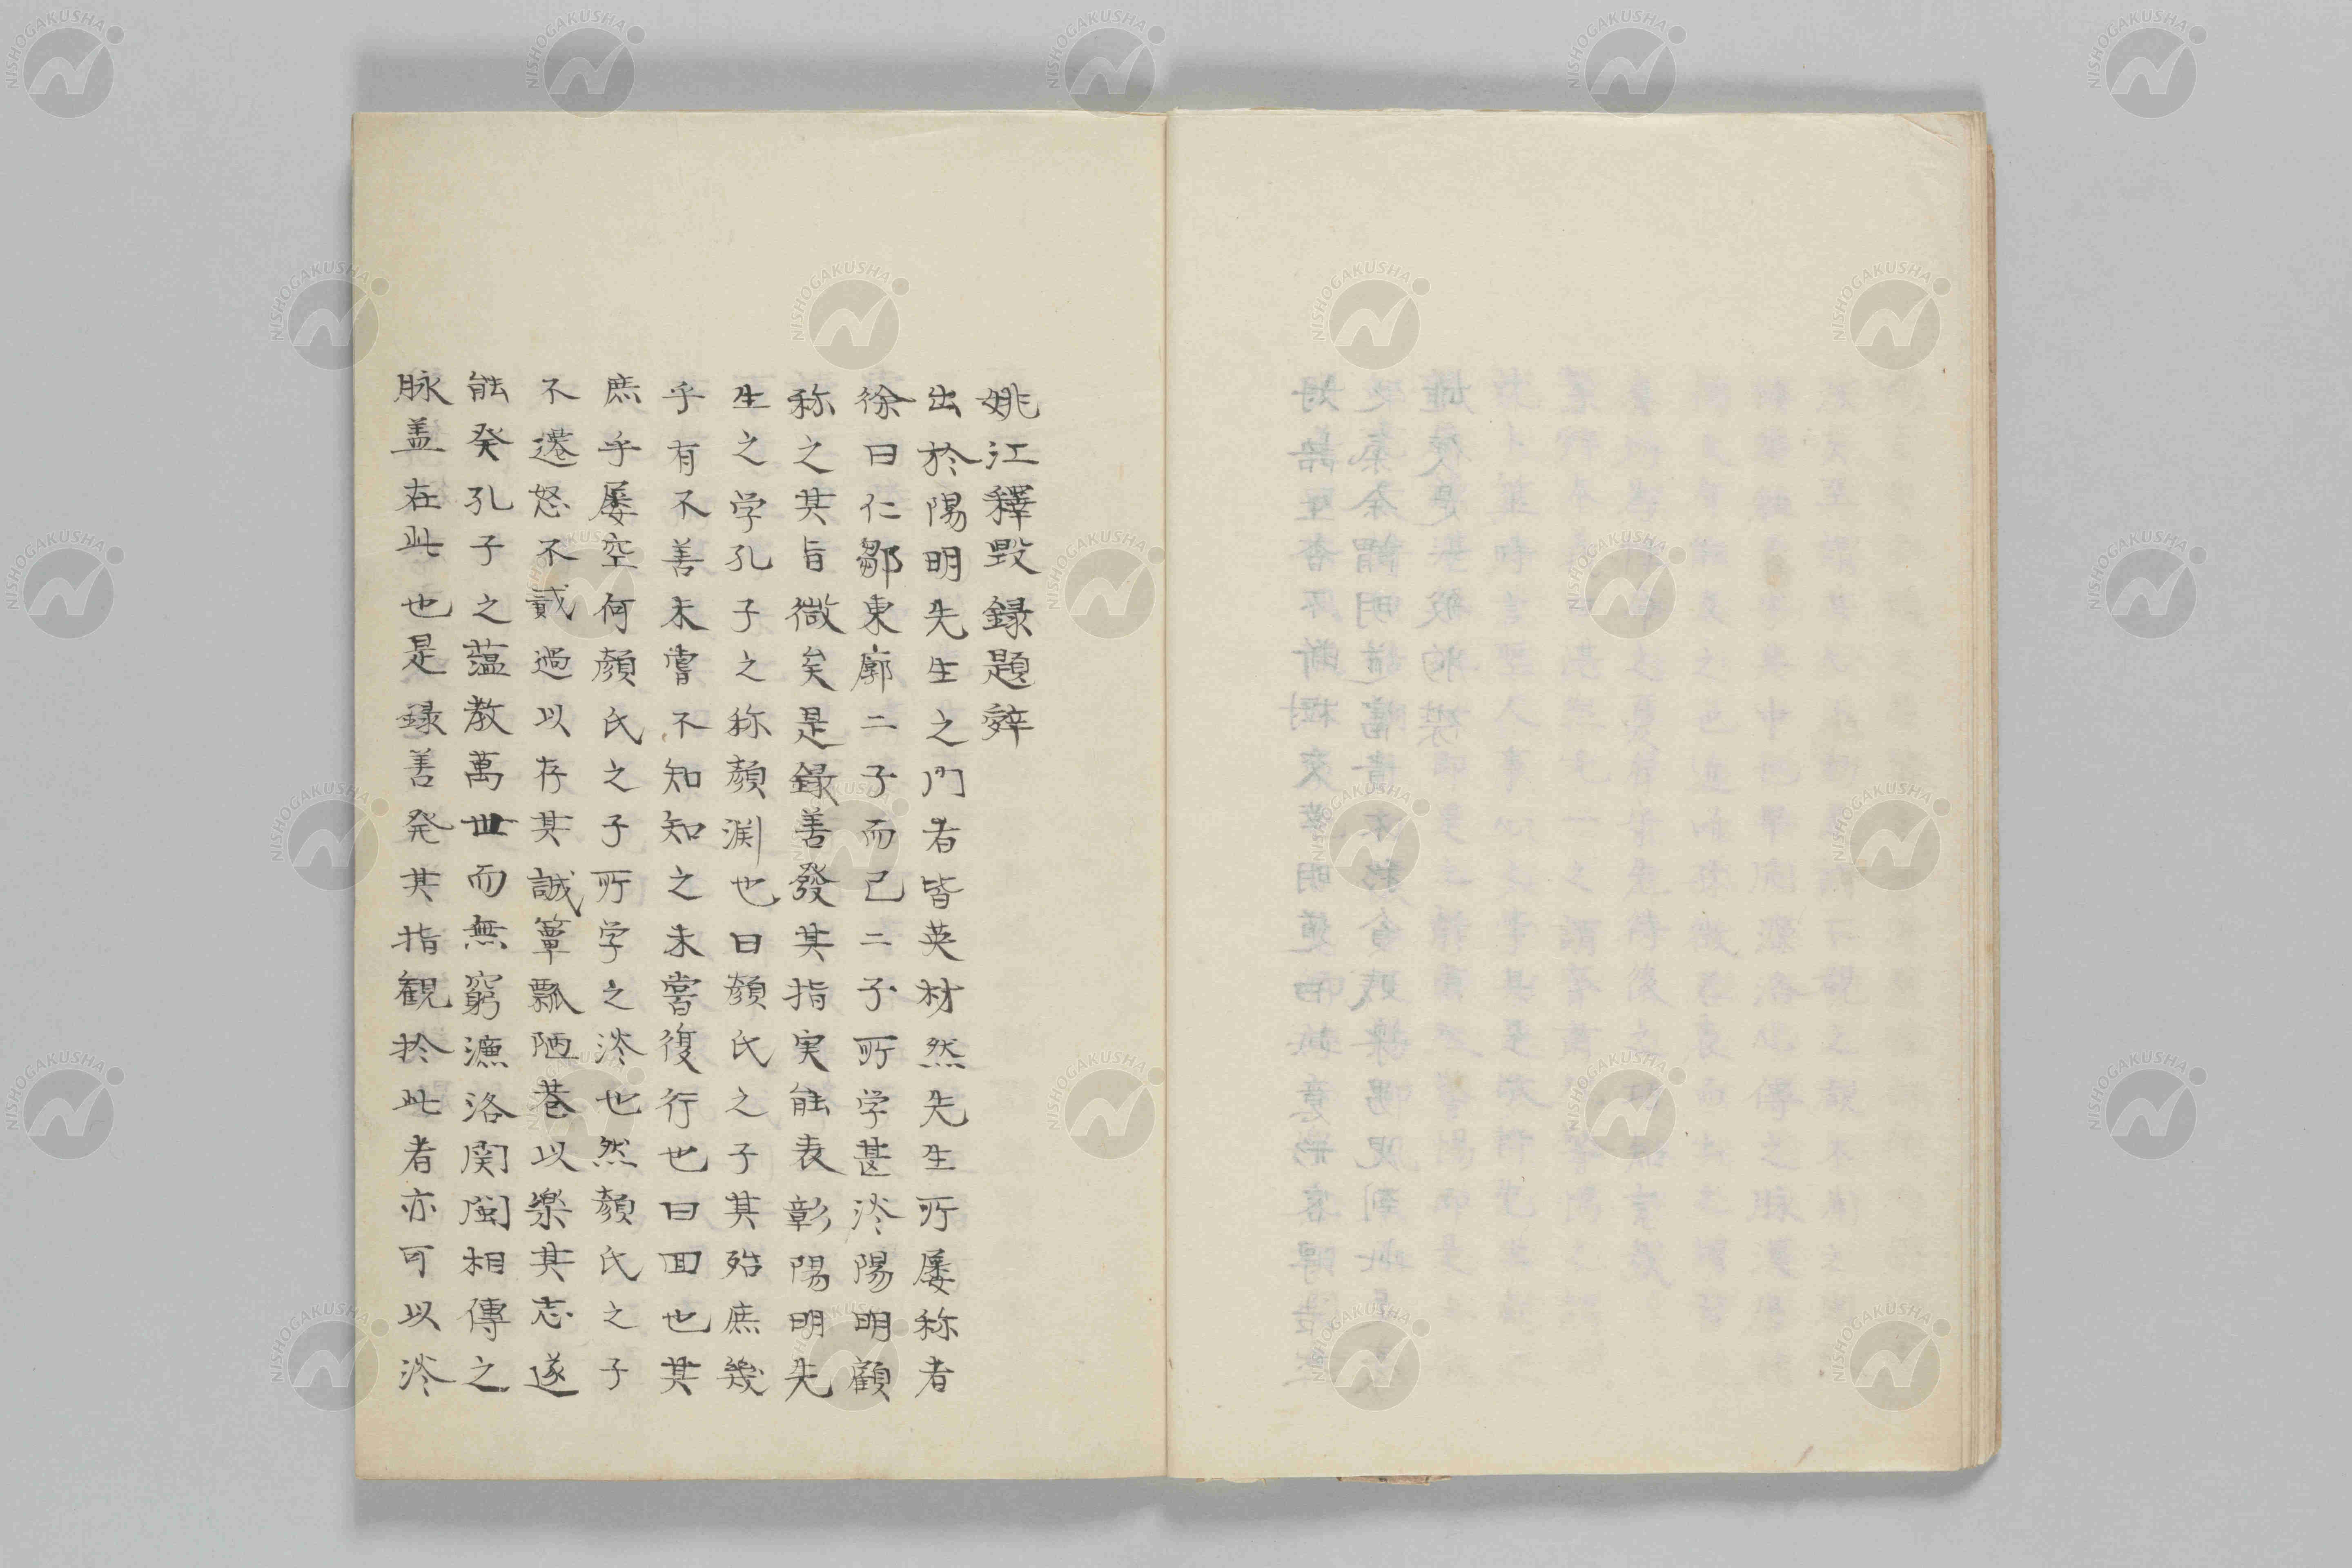 姚江釋毀録題辤
出於陽明先生之門者皆英材然先生所屡称者
徐曰仁鄒東廓二子而已二子所学甚泠陽明顧
称之其旨微矣是録善發其指実能表彰陽明先
生之学孔子之称顔渕也曰顔氏之子其殆庶幾
乎有不善未嘗不知知之未嘗復行也曰回也其
庶乎屡空何顔氏之子所学之泠也然顔氏之子
不遷怒不貳過以存其誠簞瓢陋巷以樂其志遂
能発孔子之蕰教萬世而無窮濂洛関閩相傳之
脉盖在此也是録善発其指観於此者亦可以泠
NISHOGAKUSHA